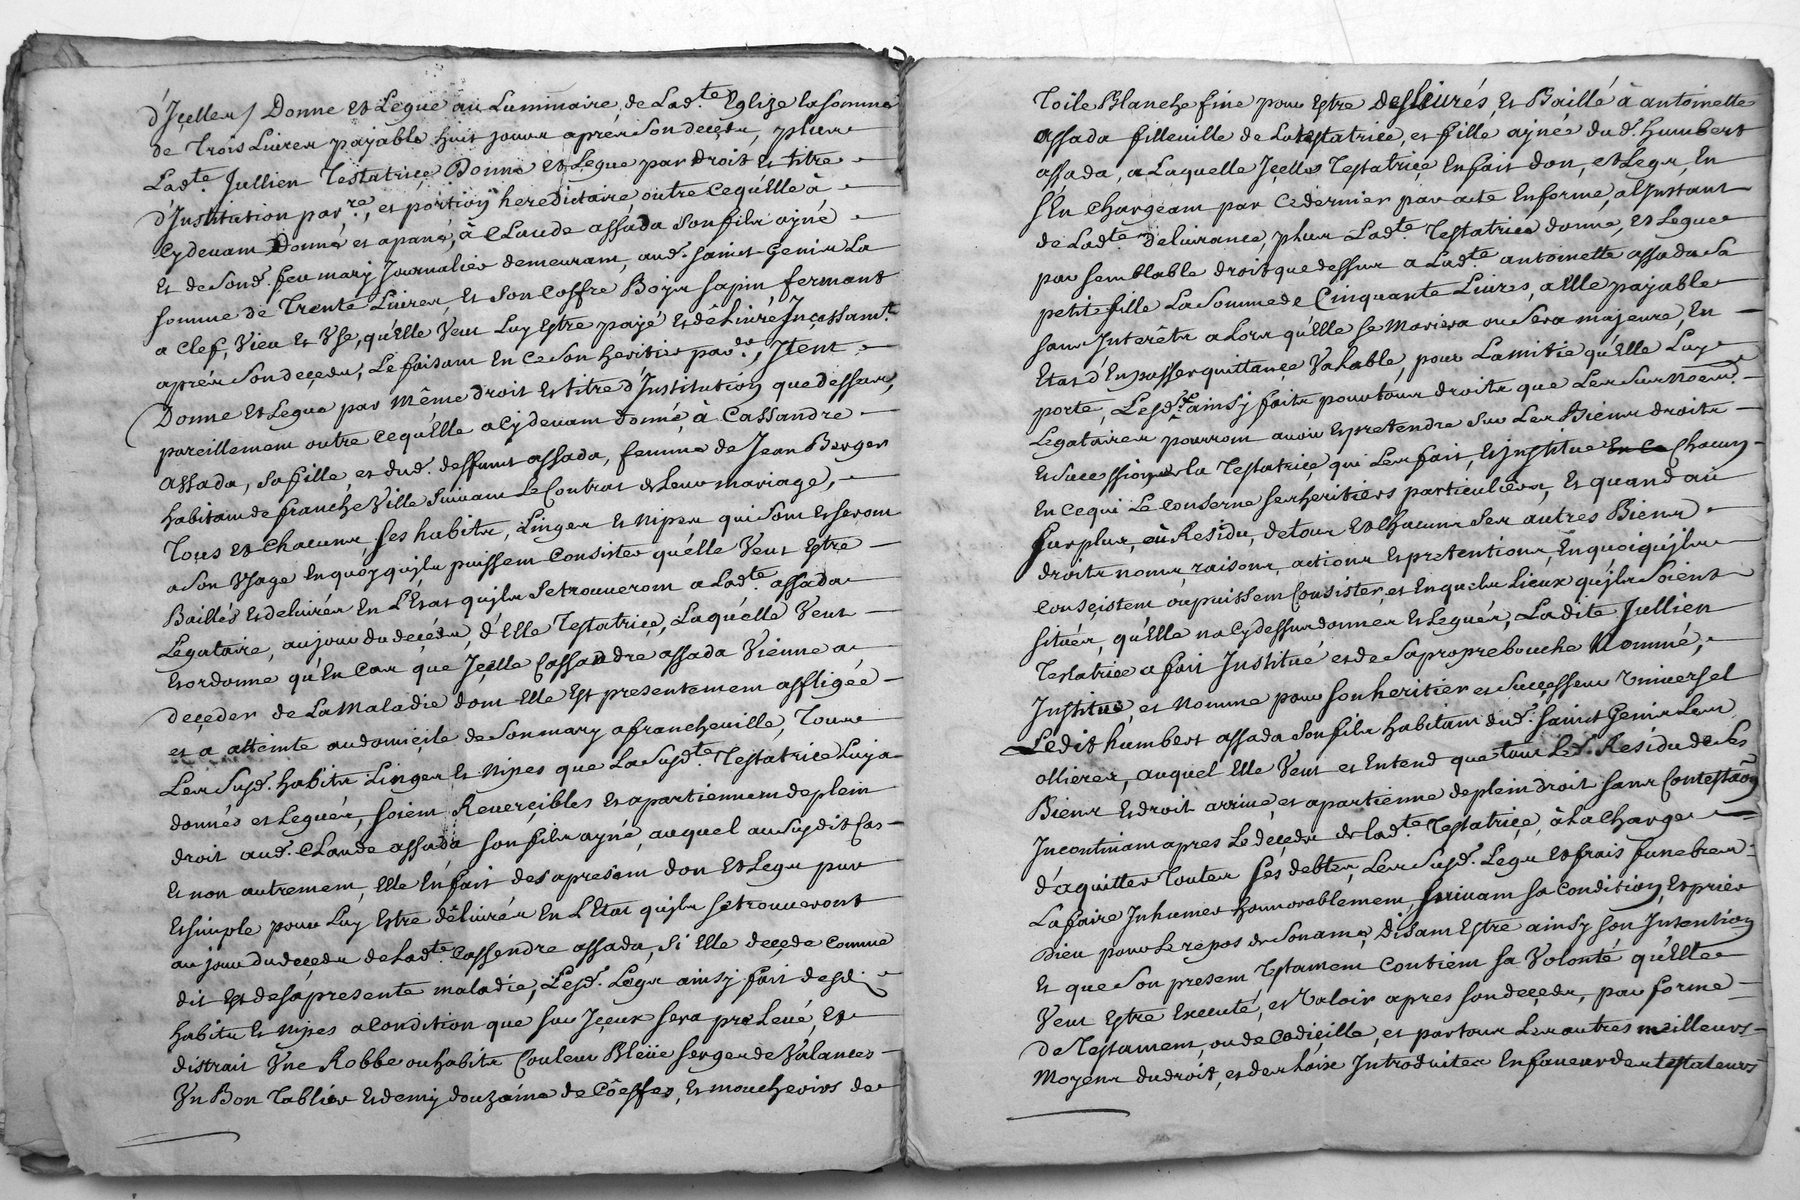 d'Jçelles / Donne et Legue au Luminaire de Lad.te Eglize la somme
de Trois Livres payable huit jours aprés son deçeds, plus
Lad.te Jullien Testatriçe Donne et Legue par droit et titre
d'Institution par.re, et portion hereditaire outre cequ'Elle à
cydevant Donné et apané, à Claude assada son fils ayné
et de Sond. feu mary Journalier demeurant, aud. Saint Genis La
somme de Trente Livres, et son Coffre Bojs sapin fermant
a Clef, Vieu et Vse, qu'Elle Veut Luy Estre payé et déLivré Jnçessam.t
aprés Son deçeds, Le faisant En ce Son heritier par.er, Jtem
Donne et Legue par même droit et titre d'Institution que dessus,
pareillement outre cequ'Elle a Cydevant donné, à Cassandre
assada, sa fille, et dud. deffunt assada, femme de Jean Berger
habitant de franche Ville Suivant Le Contrat de Leur mariage,
Tous et Chacuns ses habits, Linges et Nipes qui Sont et seront
a Son Vsage En quoy qu'jls puissent Consister qu'elle Veut Estre
Baillés et delivrés En L'Etat qu'jls Se trouveront a Lad.te assada
Legataire, au jour du deçeds, d'Elle Testatriçe, Laquélle Veut
Et ordonne qu'En Cas que Jçelle Cassandre assada Vienne a
deçeder de La Maladie dont Elle Est presentement affligée
et a atteinte au domicile de Son mary a francheville, Tous
Les Susd. habits Linges et Nipes que La Susd.te Testatrice Luy a
donnés et Legués, soient Reverçibles et apartiennent de plein
droit aud. Claude assada son fils ayné, auquel au Susdit Cas
et non autrement, Elle En fait des apresent don et Legs pur
et simple pour Luy Estre délivrés En L'Etat qu'jls se trouveront
au jour du deçeds de Lad.te Cassendre assada, Si Elle deçede Comme
dit Est de sa presente maladie, Lesd. Legs ainsy fait desd.
habits et Nipes a Condition que sur Jçeux sera preLevé, et
distrait Vne Robbe ou habits Couleur Bleüe serge de Valances
Vn Bon Tablier et demy douzaine de Cöeffes, et mouchoirs de
Toile Blanche fine pour Estre desLivrés, et Baillé à antoinette
assada filleuille de La testatrice, et fille aynée dud. humbert
assada, a Laquelle Jçelle Testatriçe En fait don, et Legs, En
s'En Chargeant par Ce dernier par acte En forme, a L'Jnstant
de Lad.te delivrance, plus Lad.te Testatrice donne, et Legue
par semblable droit que dessus a Lad.te antoinette assada sa
petit fille La Somme de Cinquante Livres, a Elle payable
sans Interêts a Lors qu'Elle se Mariera ou Sera majeure, En
Etat d'En passer quittançe Valable, pour L'amitie qu'Elle Luy
porte, Lesd. Legs ainsy faits pour tous droits que Les Sus Nommés
Legataires pourront avoir et pretendre sur Les Biens droits
et Succession de la Testatrice qui Les fait, et jnstitue Chacun
En Ce qui Le Conserne ses heritiers particuliers, Et quand au
surplus, où Residu, de tous et Chacuns Ses autres Biens
droits noms, raisons, actions et pretentions, En quoi qu'jls
Consçistent ou puissent Consister, et En quels Lieux qu'jls Soient
situés, qu'Elle na Cydessus donnés et Legués, La dite Jullien
Testatrice a fait Institué et de Sa propre bouche Nommé,
Institue, et Nomme pour son heritier et Suççesseur Vniversel
Ledit humbert assada Son fils habitant dud. Saint Genis Les
ollieres, auquel Elle Veut et Entend que tout Led. Résidu de Ses
Biens Et droit arrive, et apartienne de plein droit sans Contestaôn
Incontinant apres Le deçeds de Lad.te Testatriçe, à La Charge
d'aquitter Toutes ses debtes, Les Susd. Legs et frais funebres
La faire Inhumer honnorablement suivant sa Condition, Et prier
Dieu pour Le repos de Son ame, disant Estre ainsy Son Jntention
Et que Son present Testament Contient sa Volonté qu'Elle
Veut Estre Executé, et Valoir apres son deçeds, par forme
de Testament, ou de Codiçille, et par tous Les autres meilleurs
Moyens du droit, et des Loix Introduites En faveur des testateurs